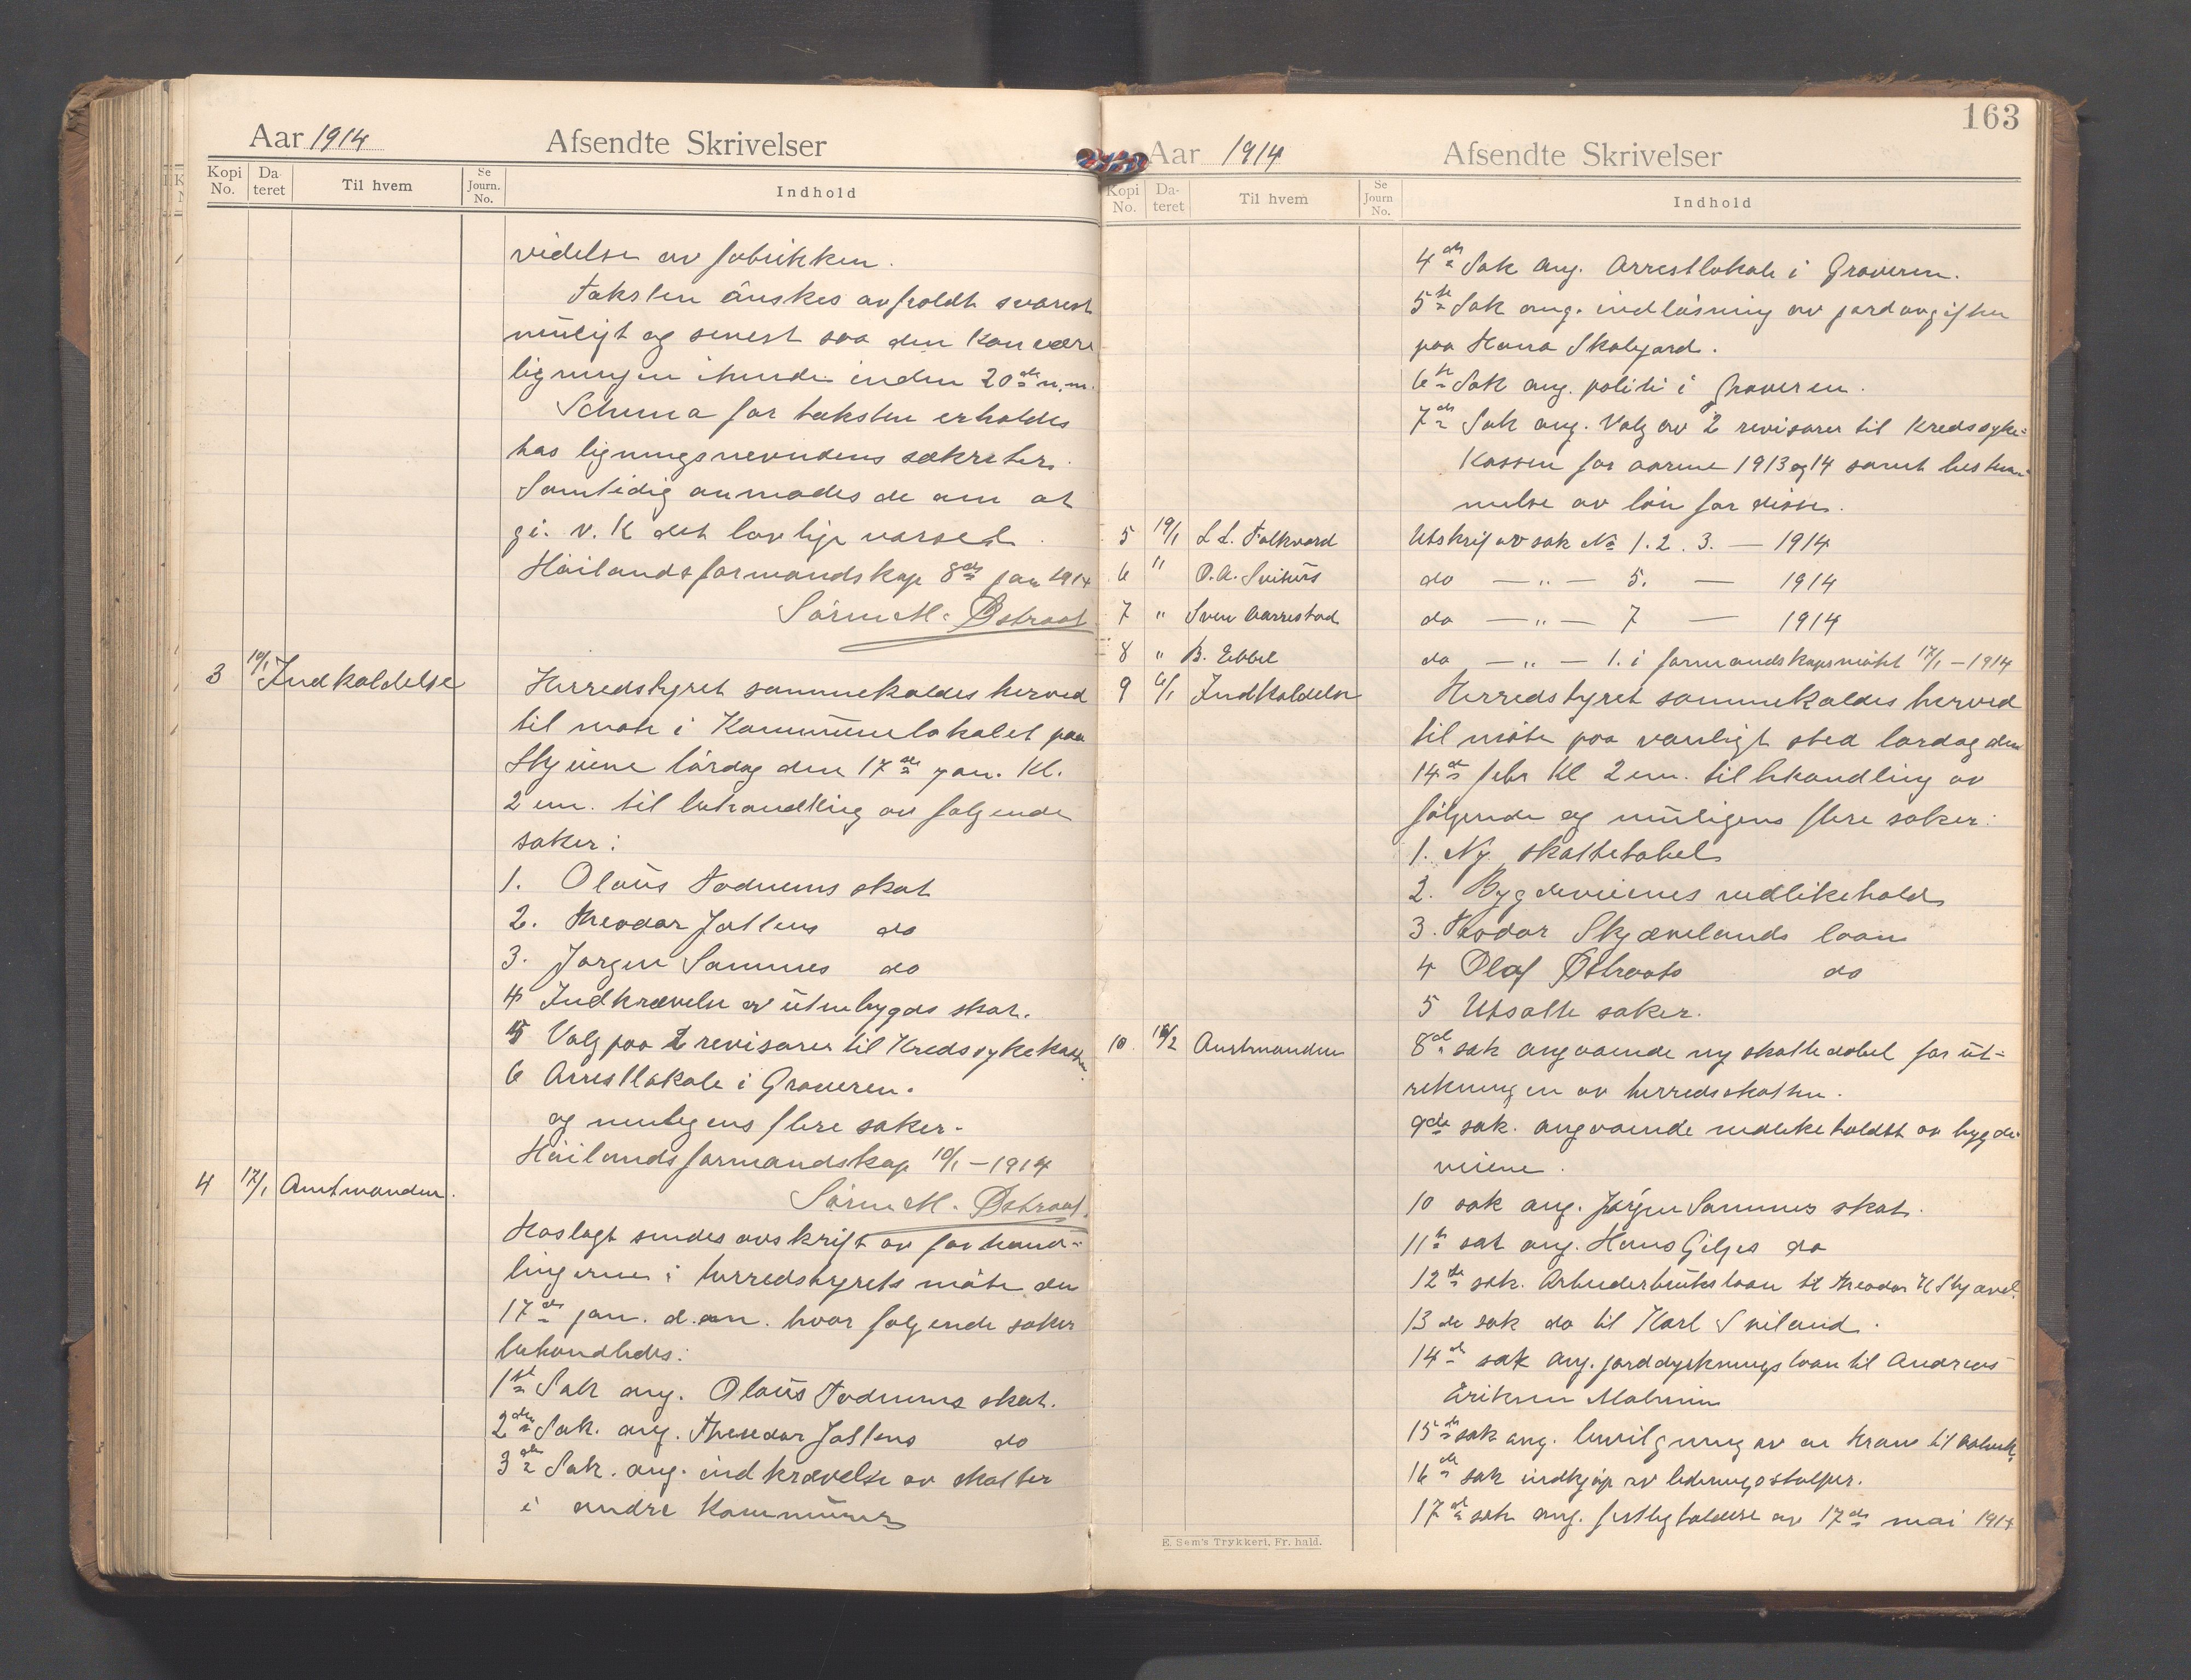 Aar 1914 Afsendte Skrivelser
Kopi No. Da teret Til hvem Se Journ. No. Indhold
videlse av fabrikken.
Taksten ønskes avholdt snarest
muligt og senest saa den kan være
ligningen ihænde inden 20de n.m.
Schema for taksten erholdes
hos ligningsnevndens sekretær.
Samtidig anmodes de om at
gi. v. K det lovlige varsel.
Høilands formandskap 8de jan 1914
Sørin M. Østraat
3 10/1 Indkaldelse Herredstyret sammekaldes herved
til møte i Kommunelokalet paa
Skjeiene lørdag den 17de jan. Kl.
2 em. til behandling av følgende
saker:
1. Olaus Todnems skat
2. Theodor Jattens do
3. Jørgen Sømmes do
4 Indkrævelse av utenbygds skat.
5 Valg paa 2 revisorer til Kredssykekassen
6 Arrestlokale i Graveren.
og muligens flere saker.
Høilands formandskap 10/1 – 1914
Sørin M. Østraat.
4 17/1 Amtmanden. Hoslagt sendes avskrift av forhand-
lingerne i herredstyrets møte den
17de jan. d.an. hvor følgende saker
behandledes:
1ste Sak ang. Olaus Todnems skat.
2den Sak. ang. Theodor Jattens do
3de Sak. ang. indkrævelse av skatter
i andre Kommuner
163
Aar 1914 Afsendte Skrivelser
Kopi No. Da- teret Til hvem Se Journ No. Indhold
4de Sak ang. Arrestlokale i Graveren.
5te Sak ang. indløsning av jordavgiften
paa Hana Skolejord.
6te Sak ang. politi i Graveren.
7de Sak ang. Valg av 2 revisorer til Kredssyke-
Kassen for aarene 1913 og 14 samt bestem-
melse av løn for disse.
5 19/1 L L. Folkvord Utskrift av sak No 1. 2. 3. — 1914
6 " O. A. Svihus do — " — 5. — 1914
7 " Sven Aarrestad do — " — 7 — 1914
8 " B. Ebbel do — " — 1. i formandskapsmøtet 17/1 – 1914
9 6/1 Indkaldelse Herredstyret sammekaldes herved
til møte paa vanligt sted lørdag den
14de febr Kl 2 em. til behandling av
følgende og muligens flere saker:
1. Ny skattetabel
2. Bygdeveienes vedlikehold
3. Teodor Skjævelands laan
4 Olaf Østraats do
5 Utsatte saker.
10 16/2 Amtmanden 8de sak angaaende ny skattetabel for ut-
rekningen av herredsskatten.
9de sak. angaaende vedlikeholdet av bygde-
veiene.
10 sak ang. Jørgen Sømmes skat.
11te sak ang. Hans Giljes do
12te sak. Arbeiderbrukslaan til Theodor H Skjævel.
13de sak do til Karl Sviland.
14de sak ang. jorddyrkningslaan til Andreas
Eriksen Malmin
15de sak ang. bevilgning av en kran til
16de sak indkjøp av ledningsstolper.
17de sak ang. festligholdelse av 17de mai 1914
E. Sem's Trykkeri, Fr. hald.